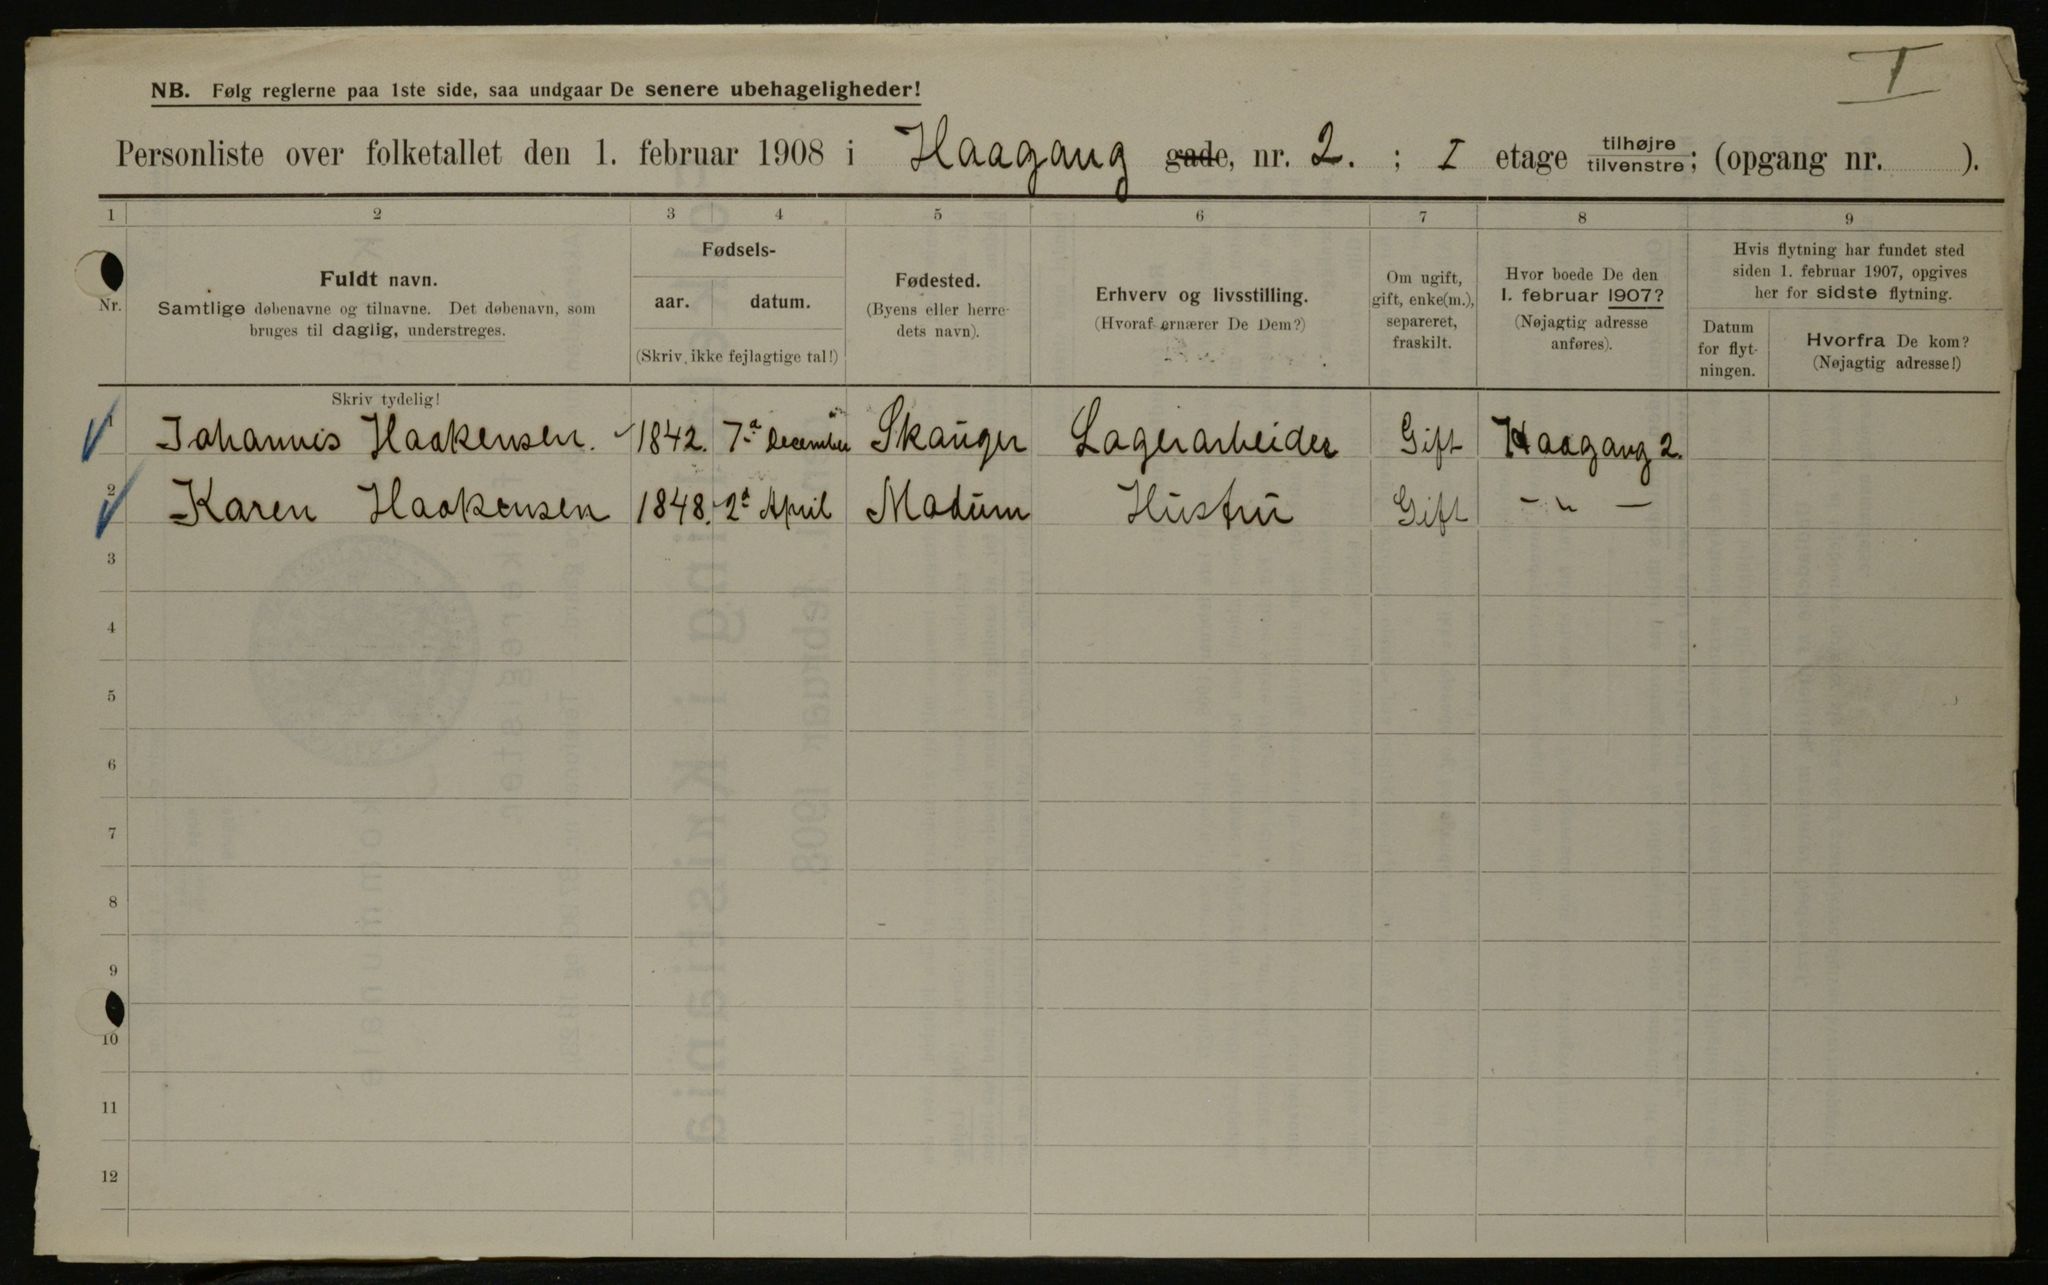 I
NB. Følg reglerne paa 1ste side, saa undgaar De senere ubehageligheder!
Personliste over folketallet den 1. februar 1908 i Haagang gade, nr. 2. ; I etage tilhøjre tilvenstre; (opgang nr. ).
1 2 3 4 5 6 7 8 9
Nr.
Fuldt navn.
Samtlige døbenavne og tilnavne. Det døbenavn, som
bruges til daglig, understreges.
Fødsels-
aar. datum.
(Skriv ikke fejlagtige tal!)
Fødested.
(Byens eller herre-
dets navn).
Erhverv og livsstilling.
(Hvoraf ernærer De Dem?)
Om ugift,
gift, enke(m.),
separeret,
fraskilt.
Hvor boede De den
1. februar 1907?
(Nøjagtig adresse
anføres).
Hvis flytning har fundet sted
siden 1. februar 1907, opgives
her for sidste flytning.
Datum
for flyt-
ningen.
Hvorfra De kom?
(Nøjagtig adresse!)
Skriv tydelig!
1 Johannis Haakensen. 1842. 7de December Skauger Lagerarbeider Gift Haagang 2.
2 Karen Haakensen 1848. 2d April Modum Hustru Gift - " -
3
4
5
6
7
8
9
10
11
12